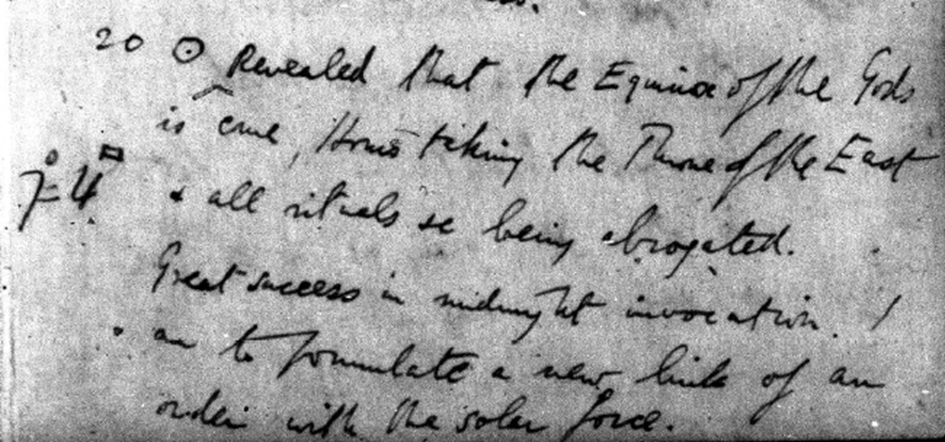 20 ☉ Revealed that the Equinox of the Gods
is come, Horus taking the Throne of the East
7°=4□ & all rituals &c being abrogated.
Great success in midnight invocation. I
am to formulate a new link of an
order with the solar force.